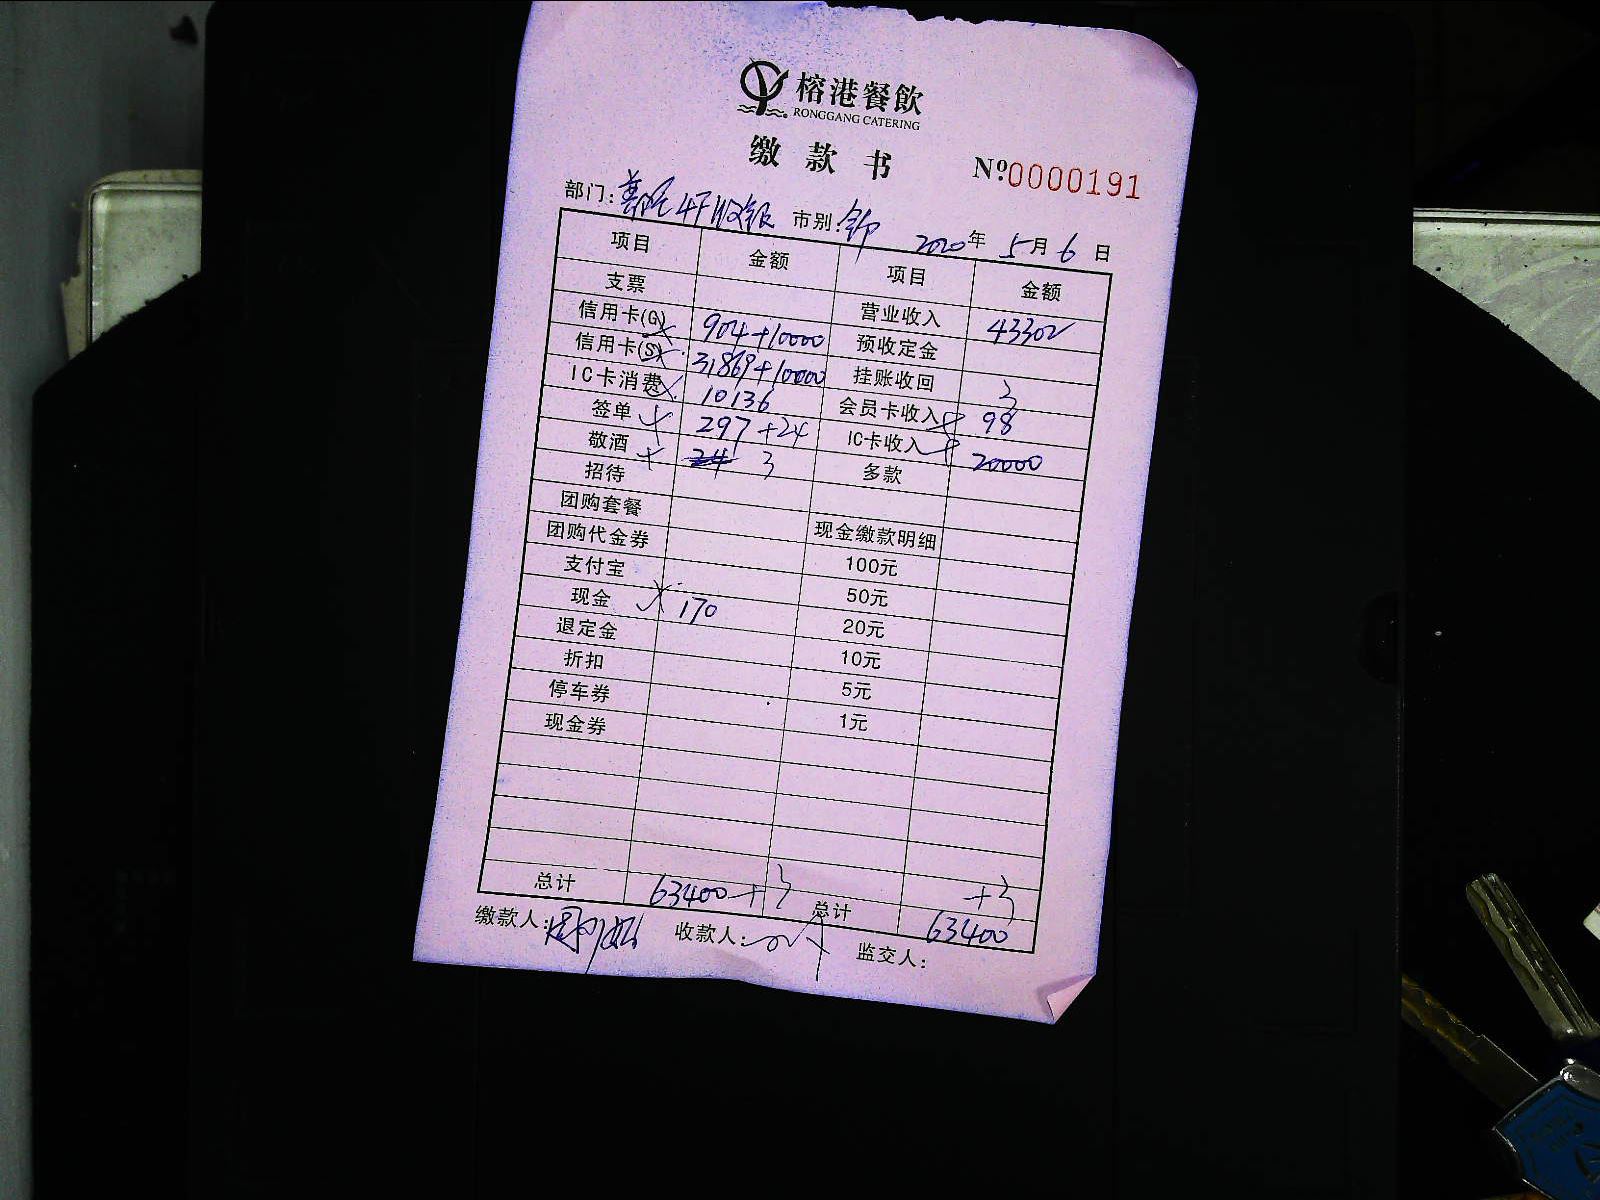 榕港餐飲
RONGGANG CATERING
缴款书 Nº:0000191
部门: 4F收银 市别: 2020年 5月 6日
项目 金额 项目 金额
支票 营业收入 43302
信用卡(G) 904+10000 预收定金
信用卡(S) 31869+10000 挂账收回 3
IC卡消费 10136 会员卡收入 98
签单 297+24 IC卡收入 20000
敬酒 3 多款
招待
团购套餐 现金缴款明细
团购代金券 100元
支付宝 50元
现金 170 20元
退定金 10元
折扣 5元
停车券 1元
现金券
总计 63400+3 总计 63400 +3
缴款人: 收款人: 监交人: